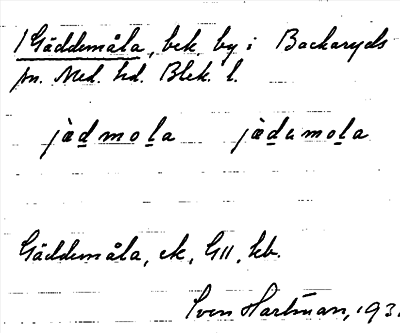 1 Gäddemåla, bek. by i Backaryds
sn. Med. hd. Blek. l.
jàd̲mol̲a jàd̲umol̲a
Gäddemåla, ek, GII, kb.
Sven Hartman, 193